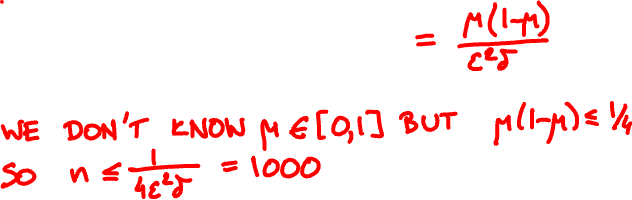 = μ(1-μ) / ε²δ
WE DON'T KNOW μ ∈ [0,1] BUT μ(1-μ) ≤ 1/4
SO n ≤ 1 / 4ε²δ = 1000